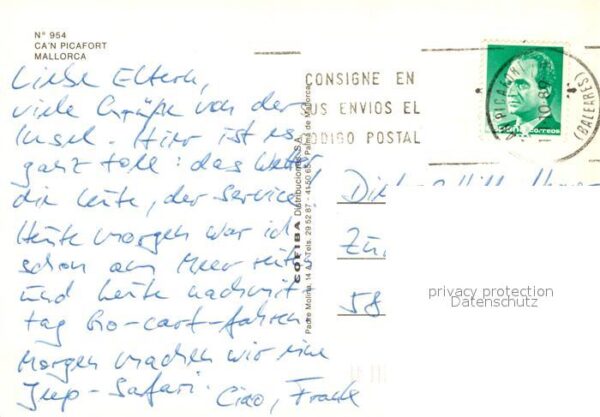 Nº 954
CA'N PICAFORT
MALLORCA
Liebe Eltern,
viele Grüße von der
Insel. Hier ist es
ganz toll: das Wetter
die Leute, der Service
Heute morgen war ich
schon am Meer reiten
und heute nachmit-
tag Go-cart-fahren
Morgen machen wir eine
Jeep-Safari. Ciao, Frank
COFIBA Distribuciones S.A.
Padre Molina, 14 A - Tels. 29 52 87 - Palma de Mallorca
CONSIGNE EN
SUS ENVIOS EL
CODIGO POSTAL
correos
(BALEARES)
58
privacy protection
Datenschutz